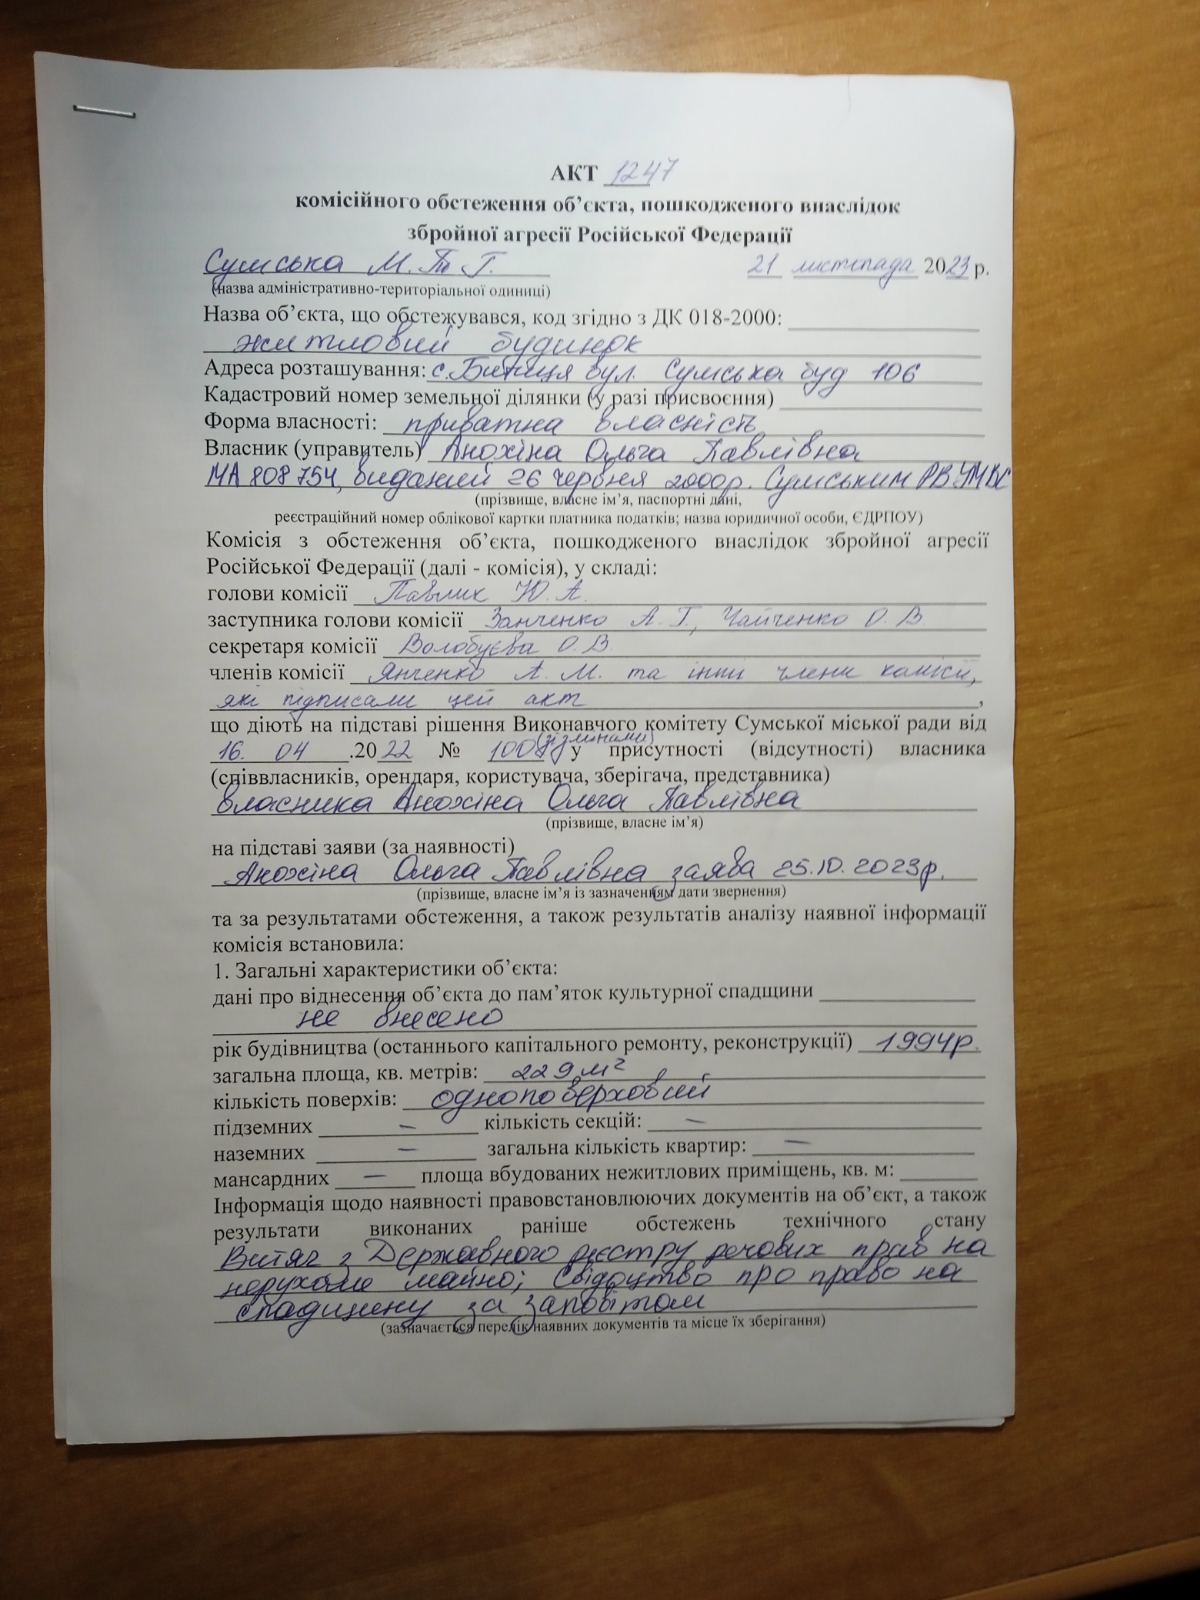 АКТ 1247
комісійного обстеження об’єкта, пошкодженого внаслідок
збройної агресії Російської Федерації
Сумська М.Т.Г. 21 листопада 2023 р.
(назва адміністративно-територіальної одиниці)
Назва об’єкта, що обстежувався, код згідно з ДК 018-2000:
житловий будинок
Адреса розташування: с.Битиця вул. Сумська буд 106
Кадастровий номер земельної ділянки (у разі присвоєння)
Форма власності: приватна власність
Власник (управитель) Анохіна Ольга Павлівна
МА 808754, виданий 26 червня 2000р. Сумським РВ УМВС
(прізвище, власне ім’я, паспортні дані,
реєстраційний номер облікової картки платника податків; назва юридичної особи, ЄДРПОУ)
Комісія з обстеження об’єкта, пошкодженого внаслідок збройної агресії
Російської Федерації (далі - комісія), у складі:
голови комісії Павлик Ю. А.
заступника голови комісії Занченко А. Г., Чайченко О. В.
секретаря комісії Волобуєва О. В.
членів комісії Янченко А. М. та інші члени комісії,
які підписали цей акт ,
що діють на підставі рішення Виконавчого комітету Сумської міської ради від
16. 04 .2022 № 100 (зі змінами) у присутності (відсутності) власника
(співвласників, орендаря, користувача, зберігача, представника)
власника Анохіна Ольга Павлівна
(прізвище, власне ім’я)
на підставі заяви (за наявності)
Анохіна Ольга Павлівна заява 25.10.2023р.
(прізвище, власне ім’я із зазначенням дати звернення)
та за результатами обстеження, а також результатів аналізу наявної інформації
комісія встановила:
1. Загальні характеристики об’єкта:
дані про віднесення об’єкта до пам’яток культурної спадщини
не внесено
рік будівництва (останнього капітального ремонту, реконструкції) 1994р.
загальна площа, кв. метрів: 229 м²
кількість поверхів: одноповерховий
підземних – кількість секцій: –
наземних – загальна кількість квартир: –
мансардних – площа вбудованих нежитлових приміщень, кв. м:
Інформація щодо наявності правовстановлюючих документів на об’єкт, а також
результати виконаних раніше обстежень технічного стану
Витяг з Державного реєстру речових прав на
нерухоме майно; Свідоцтво про право на
спадщину за заповітом
(зазначається перелік наявних документів та місце їх зберігання)